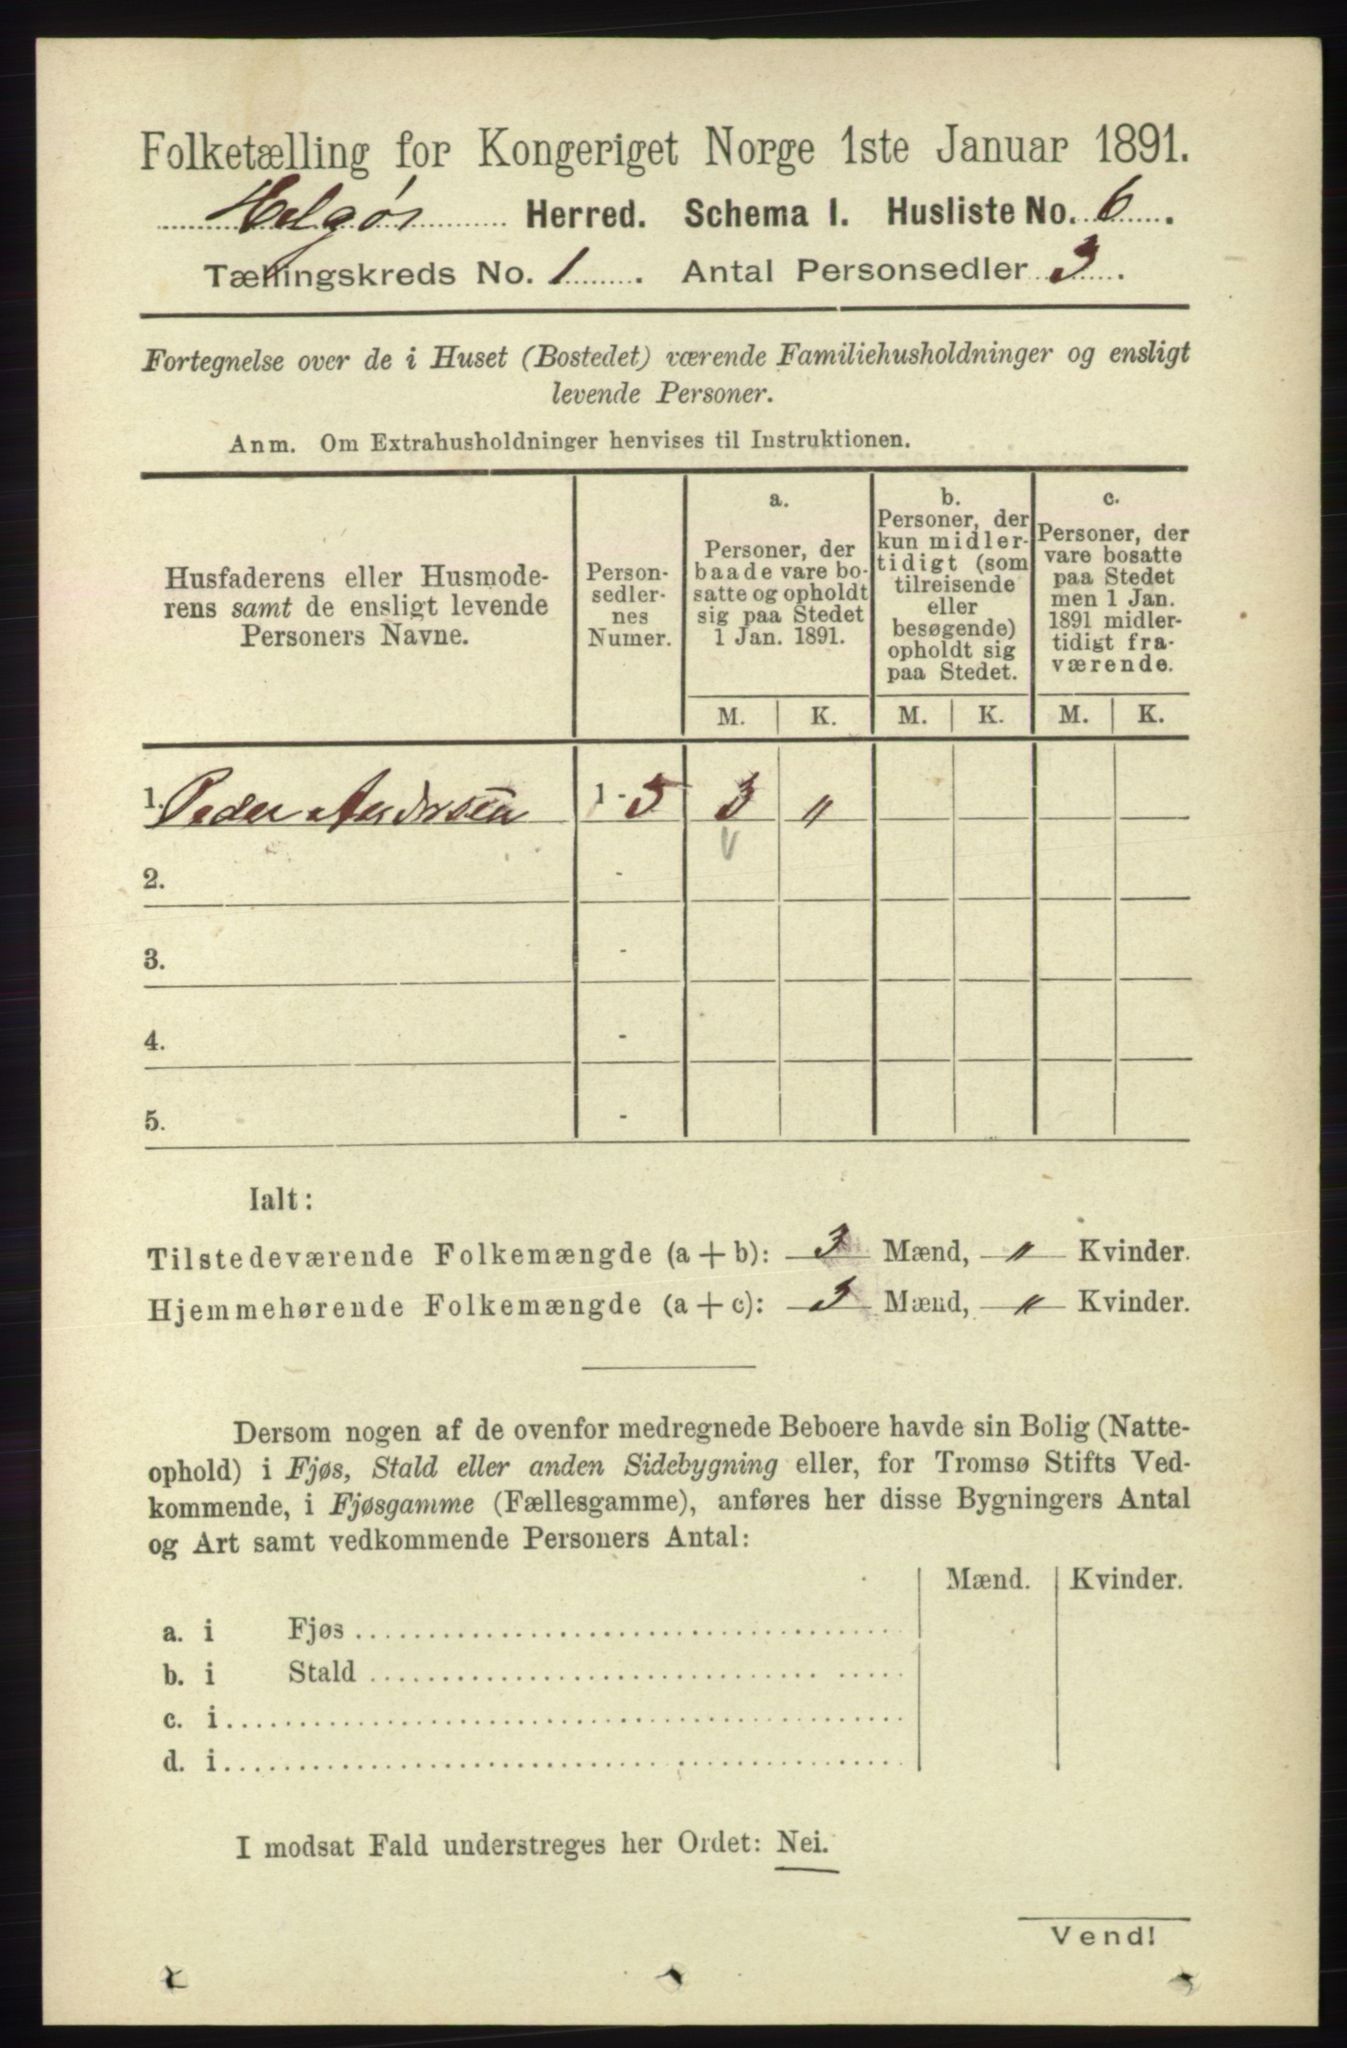 Folketælling for Kongeriget Norge 1ste Januar 1891.
Helgøs Herred. Schema I. Husliste No. 6.
Tællingskreds No. 1. Antal Personsedler 3.
Fortegnelse over de i Huset (Bostedet) værende Familiehusholdninger og ensligt
levende Personer.
Anm. Om Extrahusholdninger henvises til Instruktionen.
Husfaderens eller Husmode-
rens samt de ensligt levende
Personers Navne.
Person-
sedler-
nes
Numer.
a.
Personer, der
baade vare bo-
satte og opholdt
sig paa Stedet
1 Jan. 1891.
b.
Personer, der
kun midler-
tidigt (som
tilreisende
eller
besøgende)
opholdt sig
paa Stedet.
c.
Personer, der
vare bosatte
paa Stedet
men 1 Jan.
1891 midler-
tidigt fra-
værende.
M. K. M. K. M. K.
1. Peder Andersen 1-3 3 "
2. -
3. -
4. -
5. -
Ialt:
Tilstedeværende Folkemængde (a + b): 3 Mænd, " Kvinder.
Hjemmehørende Folkemængde (a + c): 3 Mænd, " Kvinder.
Dersom nogen af de ovenfor medregnede Beboere havde sin Bolig (Natte-
ophold) i Fjøs, Stald eller anden Sidebygning eller, for Tromsø Stifts Ved-
kommende, i Fjøsgamme (Fællesgamme), anføres her disse Bygningers Antal
og Art samt vedkommende Personers Antal:
Mænd. Kvinder.
a. i Fjøs
b. i Stald
c. i
d. i
I modsat Fald understreges her Ordet: Nei.
Vend!